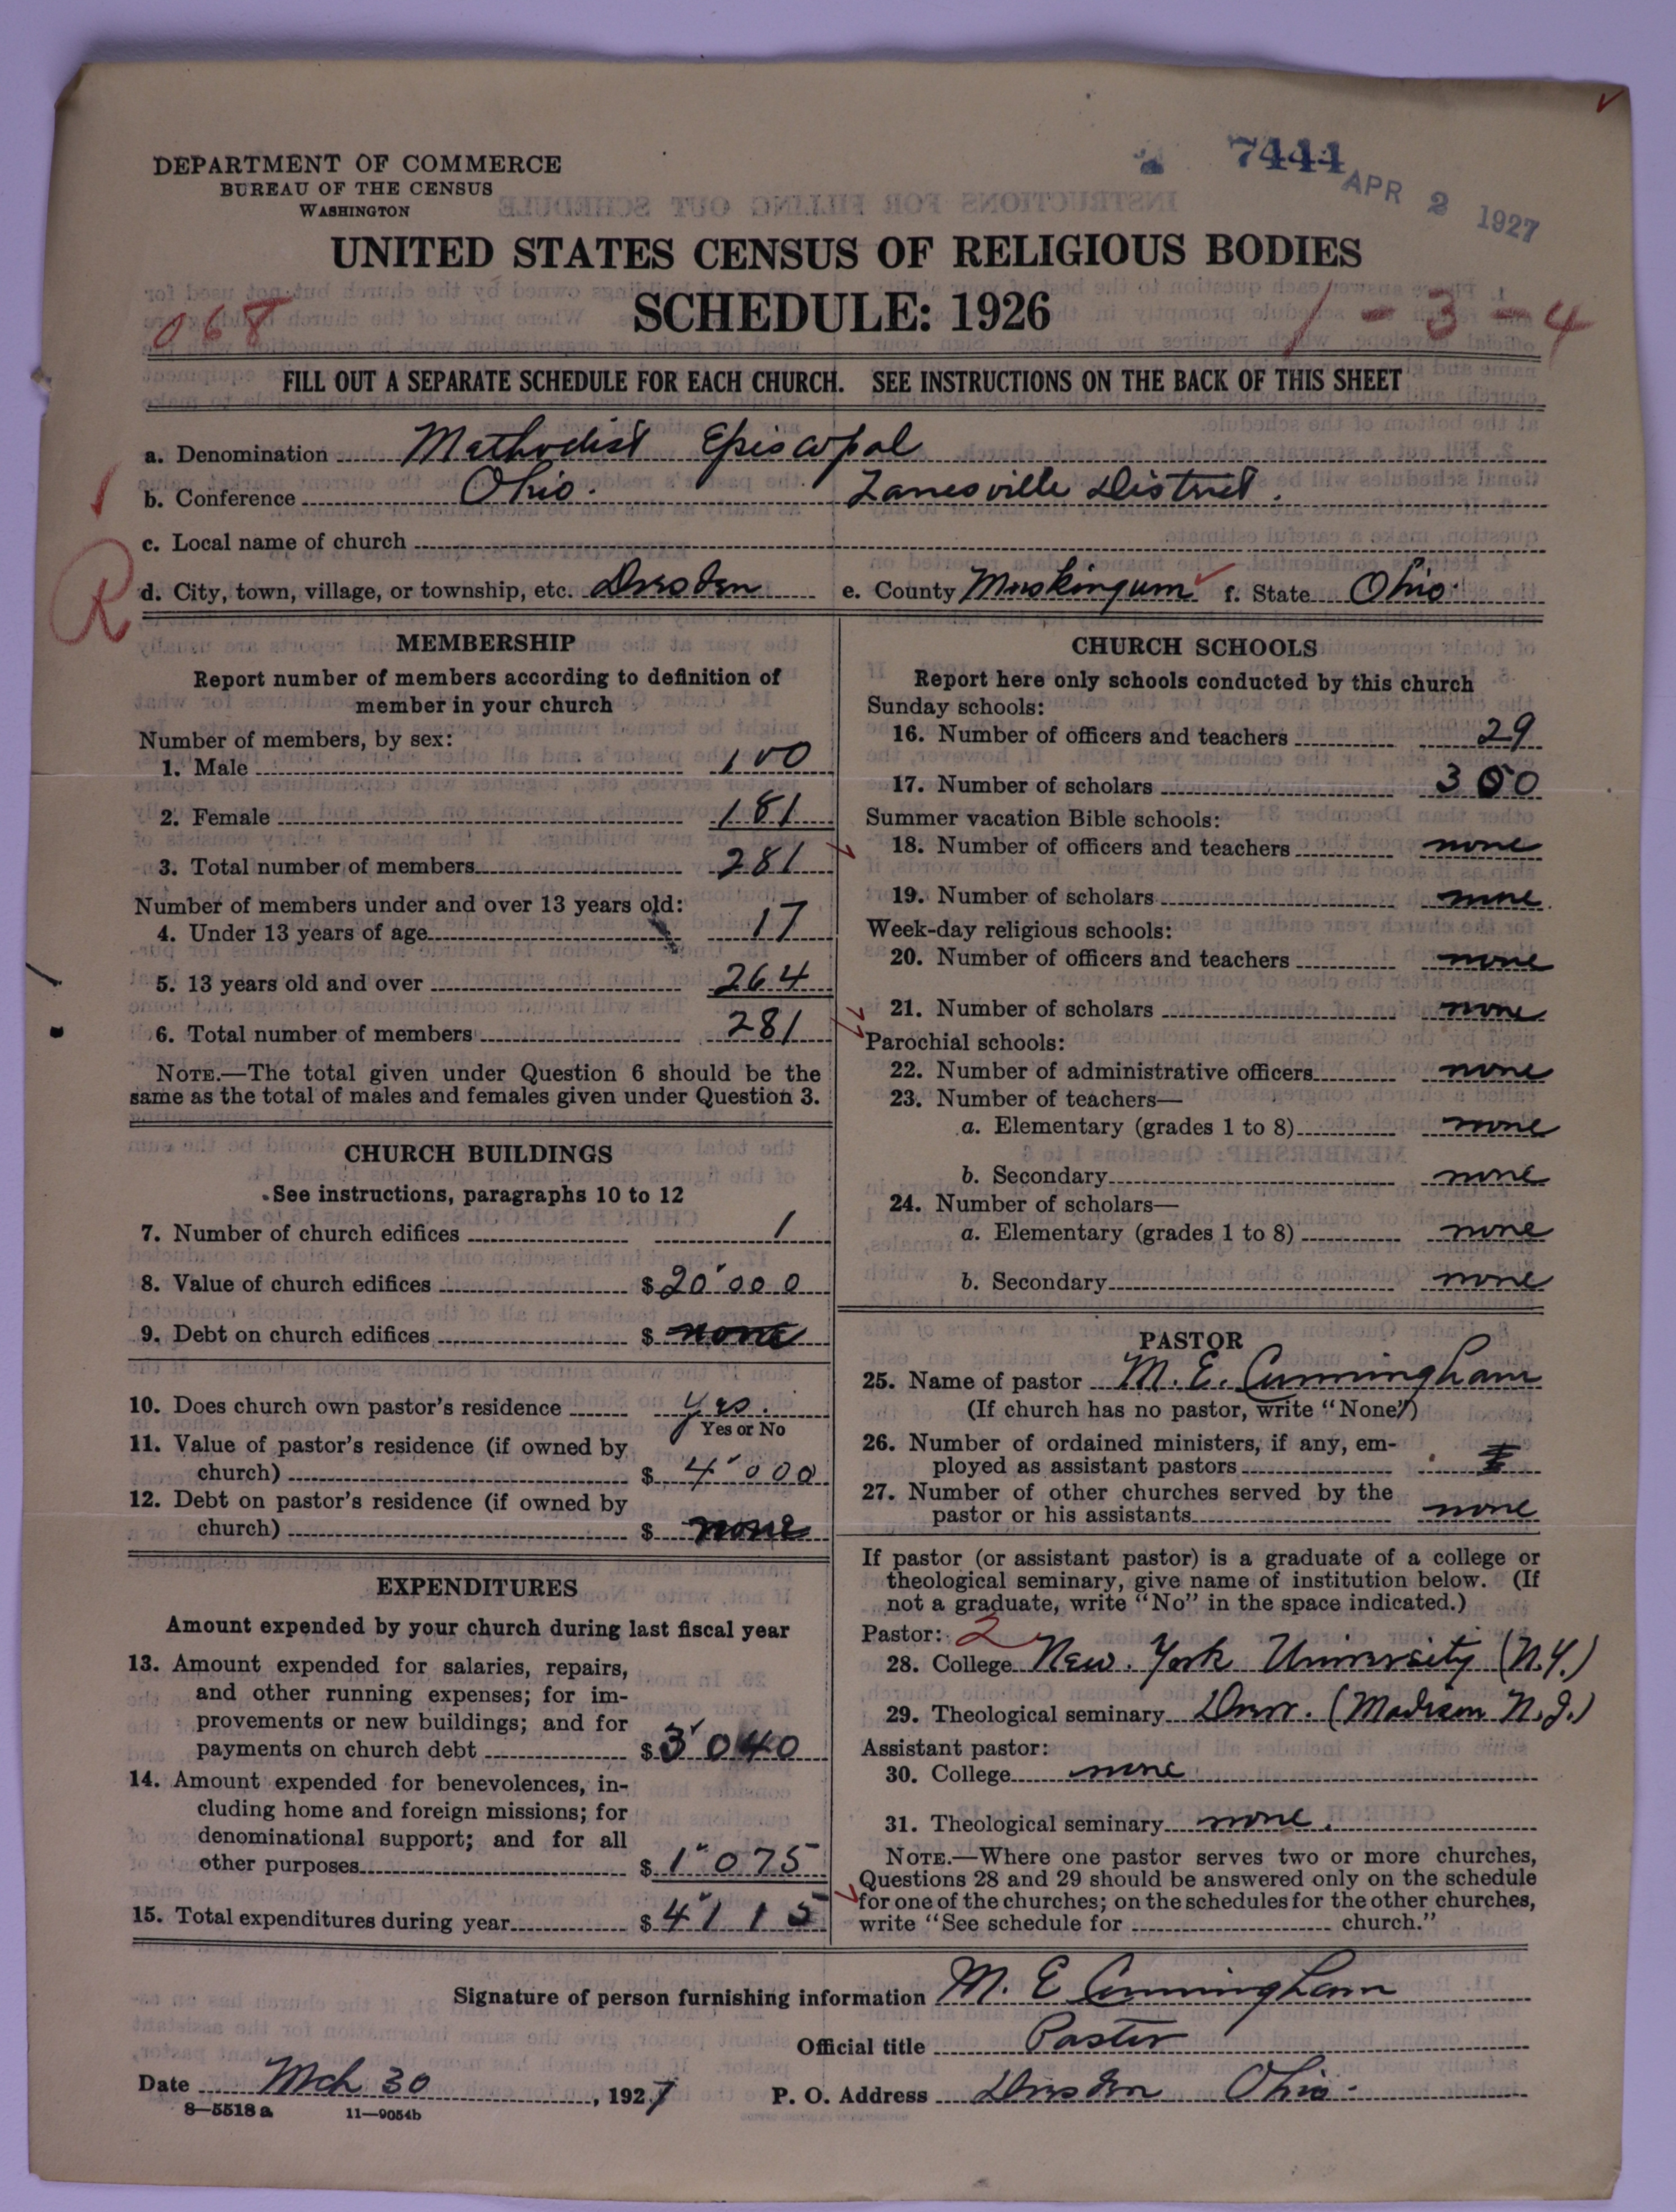 7444
APR 2 1927
DEPARTMENT OF COMMERCE
BUREAU OF THE CENSUS
WASHINGTON
UNITED STATES CENSUS OF RELIGIOUS BODIES
SCHEDULE: 1926
068
1-3-4
FILL OUT A SEPARATE SCHEDULE FOR EACH CHURCH. SEE INSTRUCTIONS ON THE BACK OF THIS SHEET
a. Denomination Methodist Episcopal
b. Conference Ohio. Zanesville District.
c. Local name of church
R
d. City, town, village, or township, etc. Dresden e. County Muskingum f. State Ohio
MEMBERSHIP
Report number of members according to definition of
member in your church
Number of members, by sex:
1. Male 100
2. Female 181
3. Total number of members 281
Number of members under and over 13 years old:
4. Under 13 years of age 17
5. 13 years old and over 264
6. Total number of members 281
NOTE.—The total given under Question 6 should be the
same as the total of males and females given under Question 3.
CHURCH BUILDINGS
See instructions, paragraphs 10 to 12
7. Number of church edifices 1
8. Value of church edifices $20'000
9. Debt on church edifices $ none
10. Does church own pastor's residence yes.
Yes or No
11. Value of pastor's residence (if owned by
church) $ 4'000
12. Debt on pastor's residence (if owned by
church) $ none
EXPENDITURES
Amount expended by your church during last fiscal year
13. Amount expended for salaries, repairs,
and other running expenses; for im-
provements or new buildings; and for
payments on church debt $3'040
14. Amount expended for benevolences, in-
cluding home and foreign missions; for
denominational support; and for all
other purposes $1'075
15. Total expenditures during year $4'115
CHURCH SCHOOLS
Report here only schools conducted by this church
Sunday schools:
16. Number of officers and teachers 29
17. Number of scholars 300
Summer vacation Bible schools:
18. Number of officers and teachers none
19. Number of scholars none
Week-day religious schools:
20. Number of officers and teachers none
21. Number of scholars none
Parochial schools:
22. Number of administrative officers none
23. Number of teachers—
a. Elementary (grades 1 to 8) none
b. Secondary none
24. Number of scholars—
a. Elementary (grades 1 to 8) none
b. Secondary none
PASTOR
25. Name of pastor M. E. Cunningham
(If church has no pastor, write "None")
26. Number of ordained ministers, if any, em-
ployed as assistant pastors
27. Number of other churches served by the
pastor or his assistants none
If pastor (or assistant pastor) is a graduate of a college or
theological seminary, give name of institution below. (If
not a graduate, write "No" in the space indicated.)
Pastor: 2
28. College New York University (N.Y.)
29. Theological seminary Drew. (Madison N.J.)
Assistant pastor:
30. College none
31. Theological seminary none.
NOTE.—Where one pastor serves two or more churches,
Questions 28 and 29 should be answered only on the schedule
for one of the churches; on the schedules for the other churches,
write "See schedule for church."
Signature of person furnishing information M. E Cunningham
Official title Pastor
Date Mch 30, 1927 P. O. Address Dresden Ohio.
8—5518 a 11—9054b